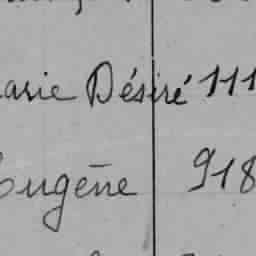 arie Désiré 111
Eugène 918